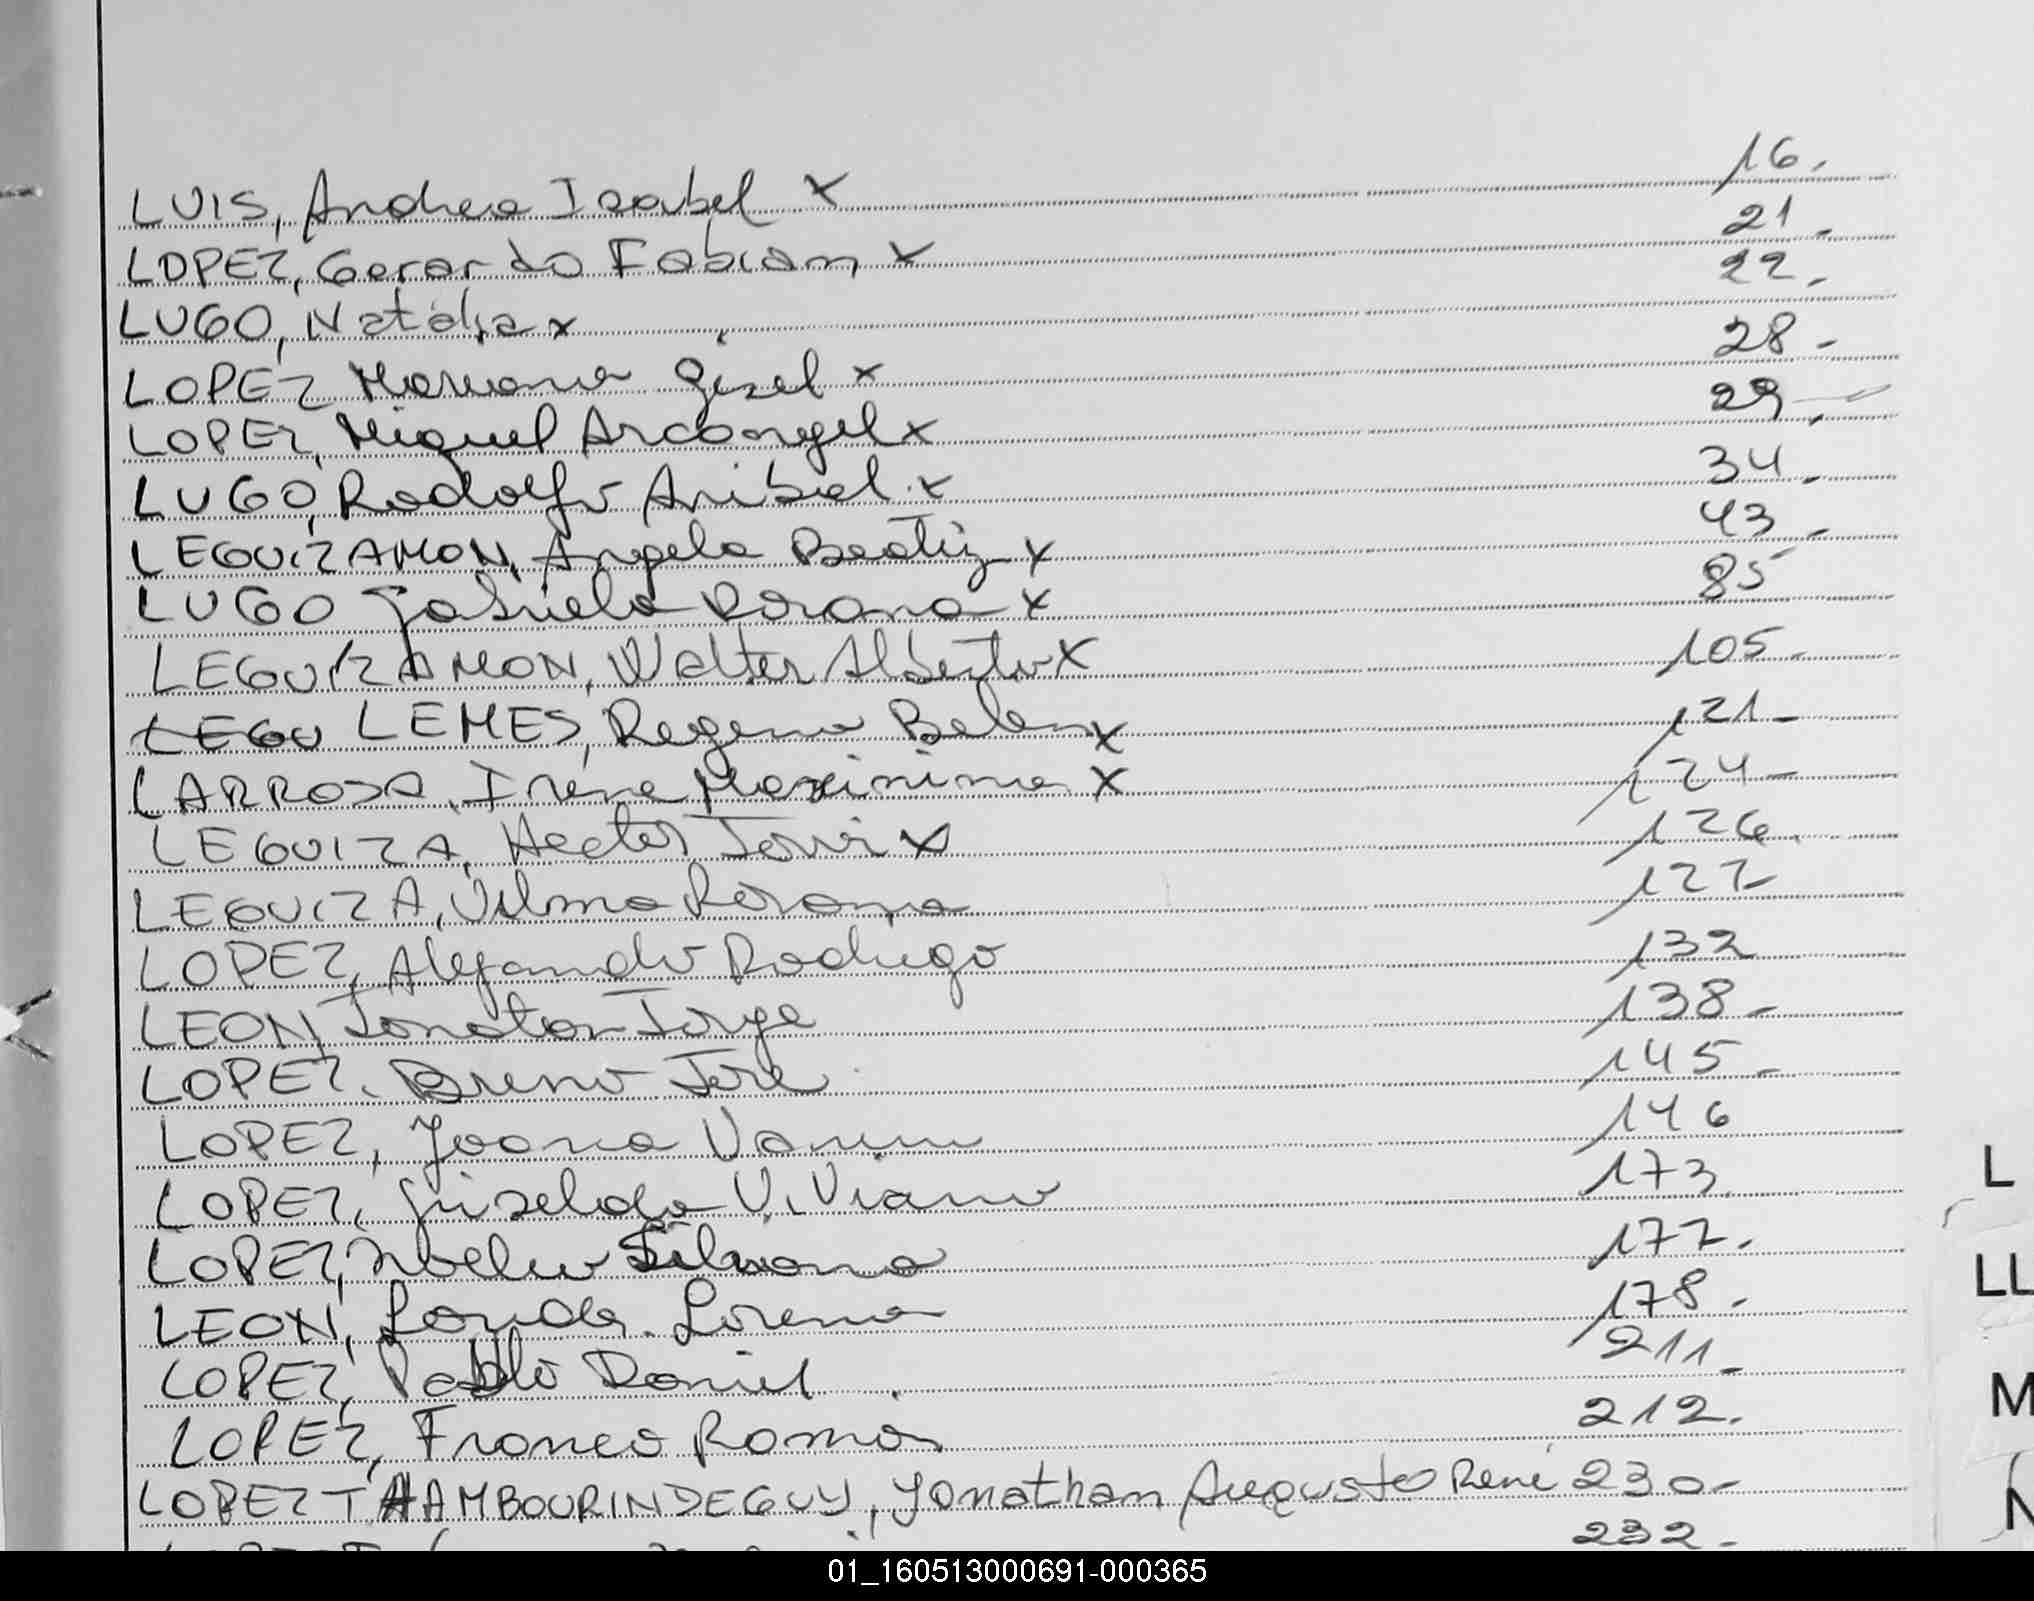 LUIS, Andrea Isabel x 16.
LOPEZ, Gerardo Fabian x 21.
LUGO, Natalia x 22.
LOPEZ Mariana Gisel x 28.
LOPEZ, Miguel Arcangel x 29.
LUGO, Rodolfo Anibal x 34.
LEGUIZAMON, Angela Beatriz x 43.
LUGO Gabriela Rosana x 85
LEGUIZAMON, Walter Alberto x 105.
LEGU LEMES, Regina Belen x 121-
LARROSA, Irene Maxinima x 124-
LEGUIZA, Hector Javier x 126.
LEGUIZA, Vilma Rosana 127-
LOPEZ, Alejandro Rodrigo 132
LEON, Jonatan Jorge 138-
LOPEZ, Bruno José 145-
LOPEZ, Joana Vanina 146
LOPEZ, Griselda Viviana 173.
LOPEZ, Noelia Silvana 177.
LEON, Lorena 178.
LOPEZ, Pablo Daniel 211-
LOPEZ, Franco Román 212.
LOPEZ TAMBOURINDEGUY, Jonathan Augusto René 230-
232-
L
LL
M
N
01_160513000691-000365